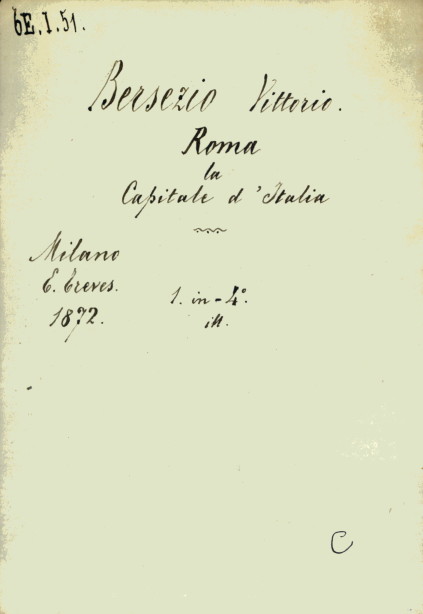 6E.I.51.
Bersezio Vittorio.
Roma
la
Capitale d'Italia
Milano
E. Treves.
1872.
1. in-4°.
ill.
C